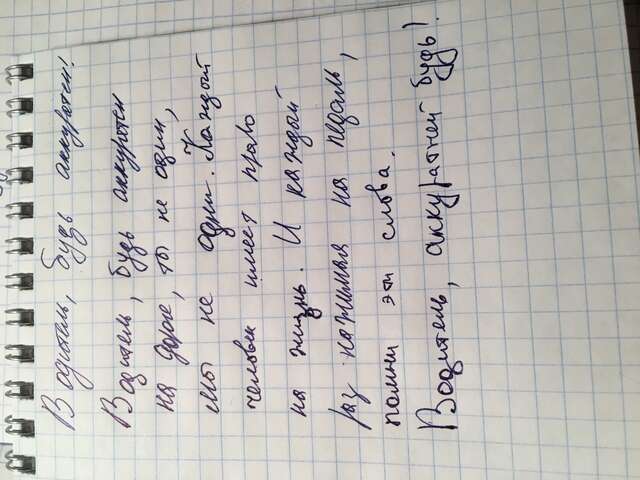 Водитель, будь аккуратен!
Водитель, будь аккуратен
на дороге, ты не один,
мы не одни. Каждый
человек имеет право
на жизнь. И каждый
раз нажимая на педаль,
помни эти слова.
Водитель, аккуратней будь!